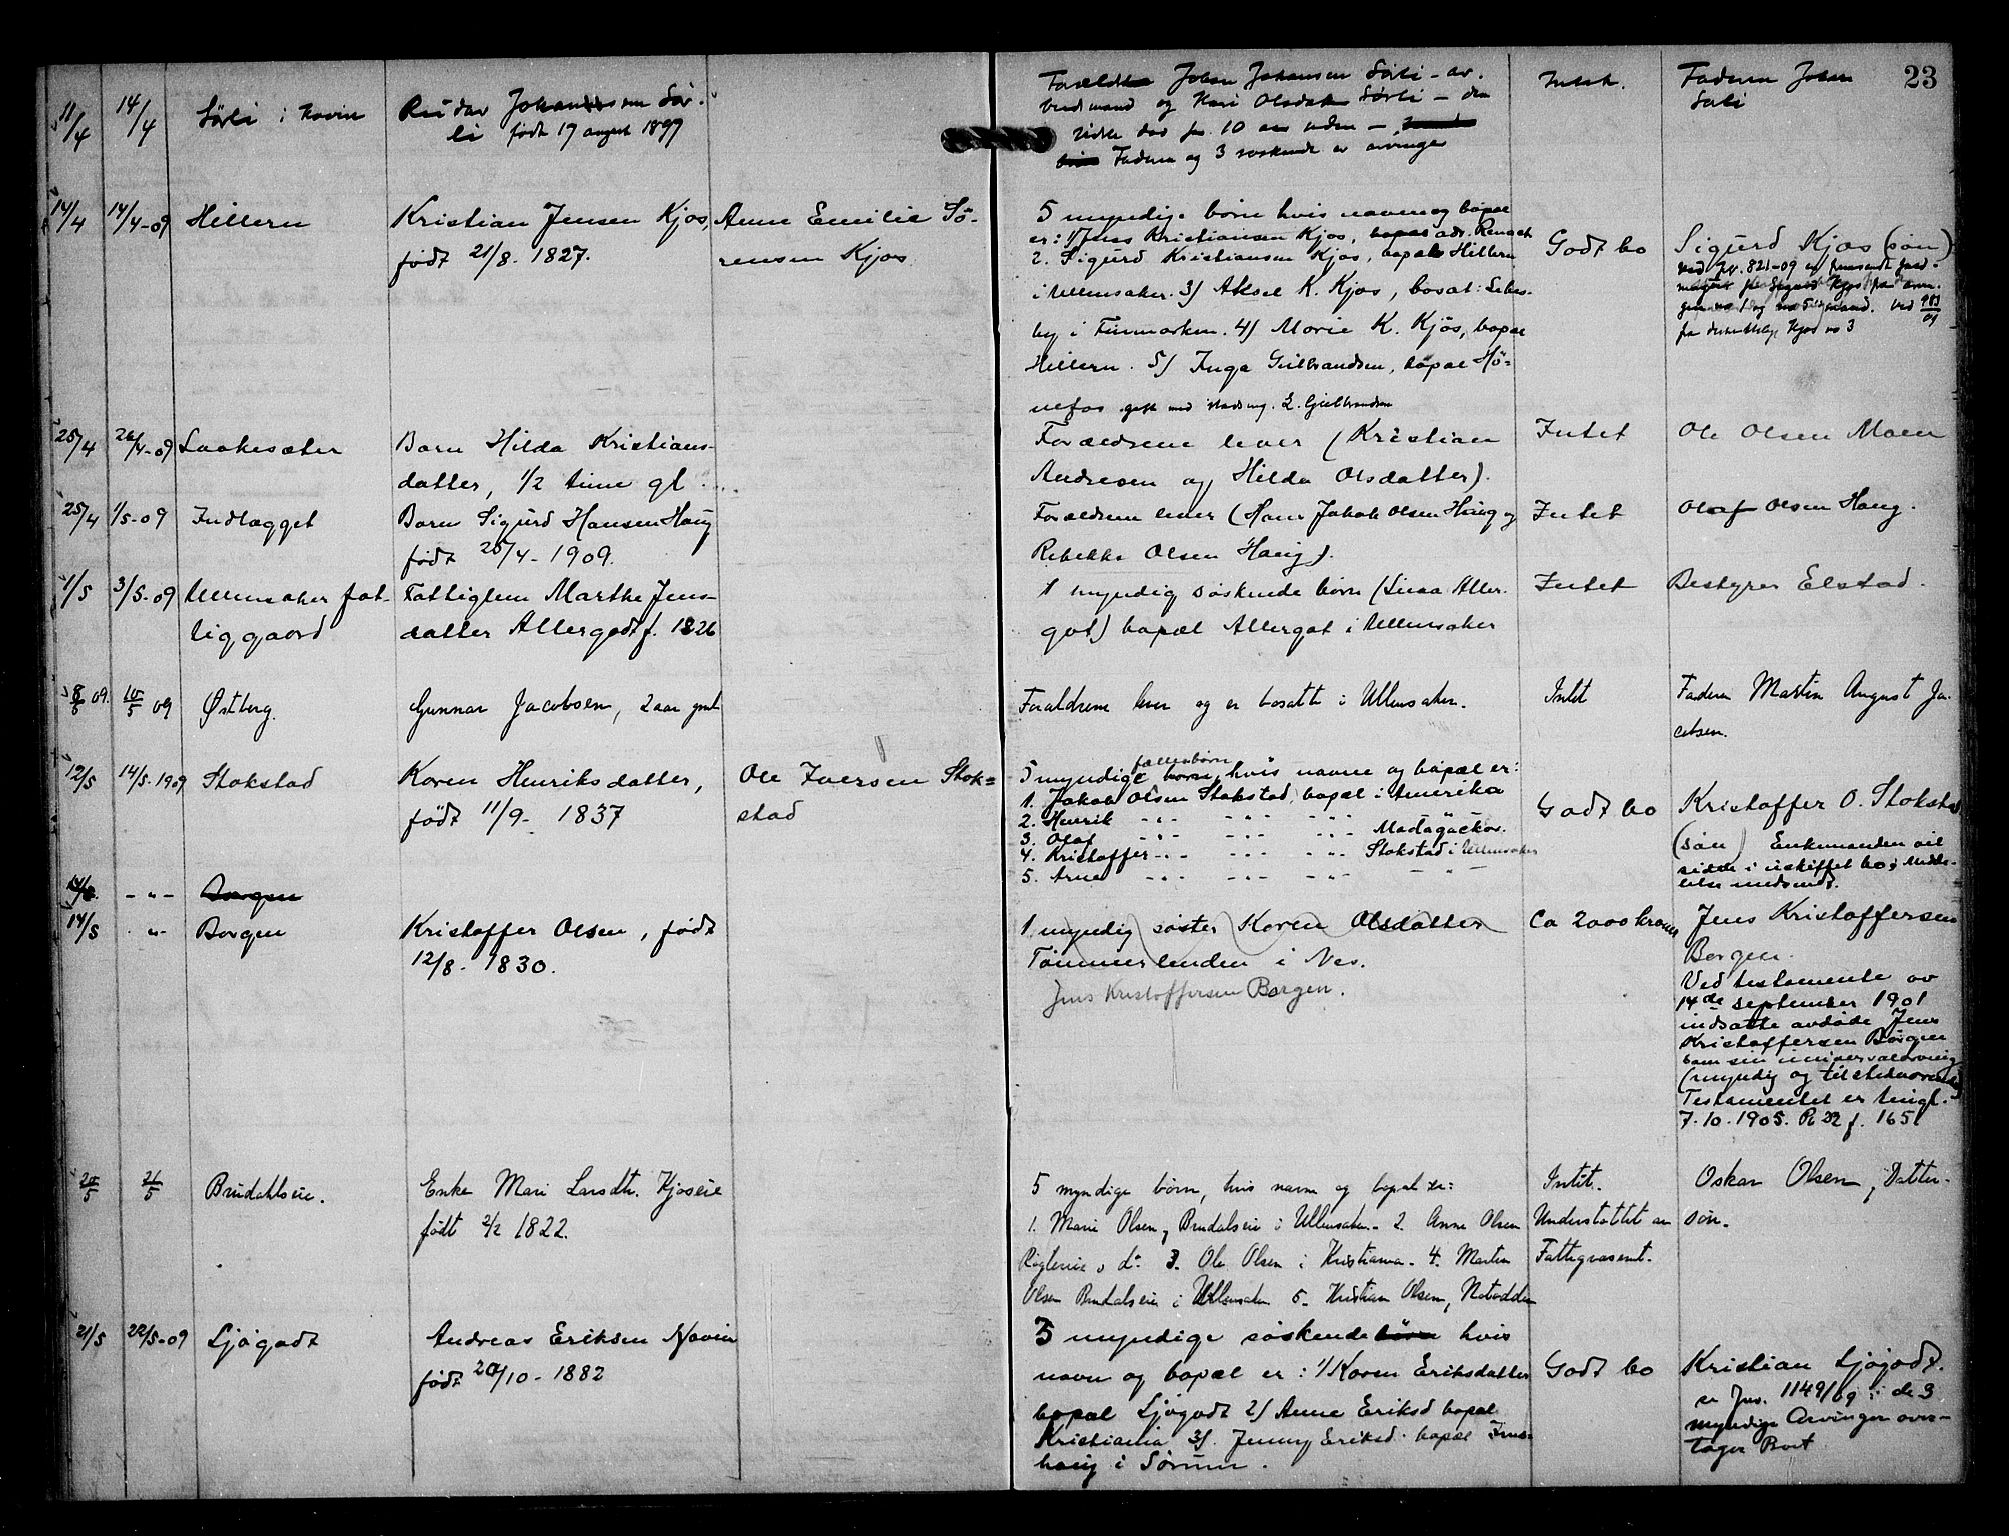 23
11/4 14/4 Sørli i Hovin
Reidar Johansen Sør-
li født 17 august 1897
Johan Johansen Sørli - ar-
beidsmand og Kari Olsdatter Sørli - den
sidste død for 10 aar siden -
Faderen og 3 søskende er arvinger
Intet.
Faderen Johan
Sørli
14/4 14/4-09 Hillern
Kristian Jensen Kjos,
født 21/8. 1827.
Anne Emilie Sö-
rensen Kjos
5 myndige børn hvis navne og bopæl
er: 1/ Jens Kristiansen Kjos, bopæl adr.
2. Sigurd Kristiansen Kjos, bopæl Hillern
i Ullensaker. 3/ Aksel K. Kjos, bosat: Lebes-
by i Finmarken. 4/ Marie K. Kjos, bopæl
Hillern. 5/ Inga Gulbrandsen, bopæl Hö-
nefos gift med L. Gulbrandsen
Godt bo
Sigurd Kjos (søn)
25/4 26/4-09 Laakesæter
Barn Hilda Kristians-
datter, 1/2 time gl.
Forældrene lever (Kristian
Andresen og Hilda Olsdatter).
Intet
Ole Olsen Moen
25/4 1/5-09 Indlægget
Barn Sigurd Hansen Haug
født 25/4-1909.
Forældrene lever (Hans Jakob Olsen Haug og
Rebekka Olsen Haug).
Intet
Olaf Olsen Haug.
1/5 3/5-09 Ullensaker fat-
tiggaard
Fattiglem Marthe Jens-
datter Allergodt f. 1826
1 myndig søskende børn (Linaa Aller-
got) bopæl Allergot i Ullensaker
Intet
Bestyrer Elstad.
8/5 09. 10/5 09 Østberg.
Gunnar Jacobsen, 2 aar gml
Forældrene lever og er bosatte i Ullensaker.
Intet
Faderen Martin August Ja-
cobsen.
12/5 14/5-1909 Stokstad
Karen Henriksdatter,
født 11/9. 1837
Ole Iversen Stok-
stad
5 myndige fællesbørn, hvis navne og bopæl er:
1. Jakob Olsen Stokstad, bopæl i Amerika
2. Henrik -"- -"- -"-
3. Olaf -"- -"- -"- Madagaskar.
4. Kristoffer -"- -"- -"- Stokstad i Ullensaker
5. Arne -"- -"- -"- - " -
Godt bo
Kristoffer O. Stokstad
(søn) Enkemanden vil
sidde i uskiftet bo; Medde-
lelse indsendt.
-"- Borgen
14/5 -"- Borgen
Kristoffer Olsen, født
12/8. 1830.
1 myndig søster Karen Olsdatter
Tømmerlunden i Nes.
Jens Kristoffersen Borgen.
Ca 2000 kroner
Jens Kristoffersen
Borgen.
Ved testamente av
14de september 1901
indsatte avdøde Jens
Kristoffersen Borgen
som sin universalarving
(myndig og tilstedeværende)
Testamentet er tingl.
7-10-1905. P. 22 f. 165
20/5 21/5 Brudahlseie.
Enke Mari Larsdtr. Kjoseie
født 2/2 1822.
5 myndige børn, hvis navne og bopæl er:
1. Marie Olsen, Brudalseie i Ullensaker - 2. Anne Olsen
3. Ole Olsen i Kristiania. 4. Martin
Olsen Brudalseie i Ullensaker 5. Kristian Olsen, Notodden
Intet.
Understøttet av
Fattigvæsenet.
Oskar Olsen, Datter-
søn.
21/5 22/5-09 Ljøgodt
Andreas Eriksen
født 20/10-1882
3 myndige søskende børn hvis
navn og bopæl er: 1/ Karen Eriksdatter
bopæl Ljøgodt 2/ Anne Eriksd bopæl
Kristiania 3/. Jenny Eriksd. bopæl
haug i Sørum.
Godt bo
Kristian Ljøgodt.
se Jnr. 1149/09: de 3
myndige Arvinger over-
tager Boet